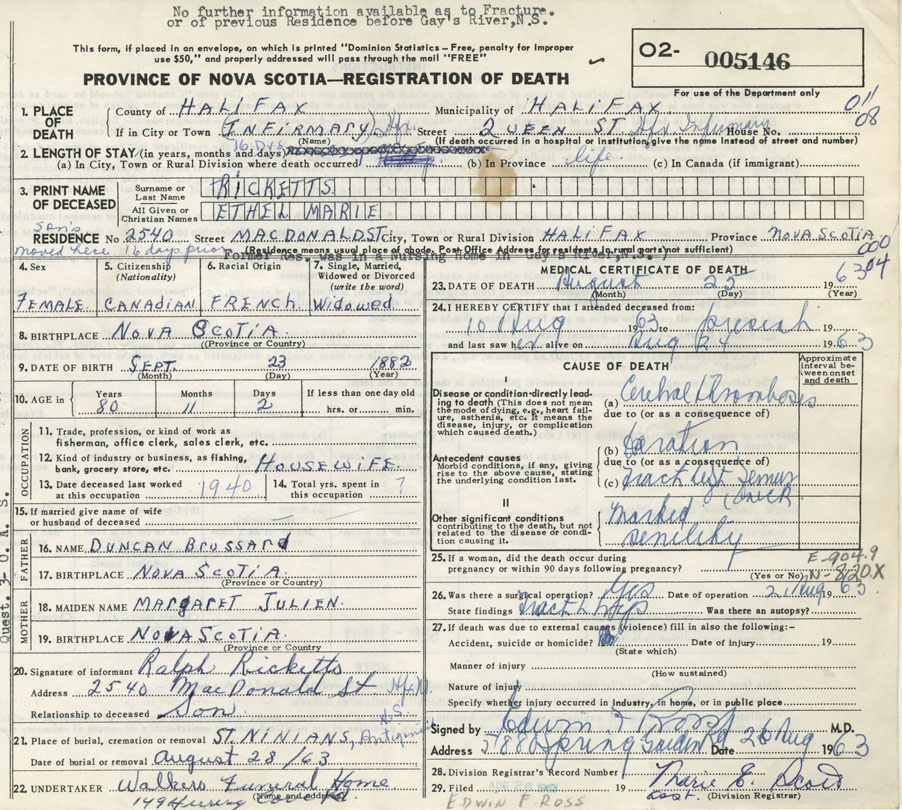 No further information available as to Fracture.
or of previous Residence before Gay's River, N.S.
This form, if placed in an envelope, on which is printed "Dominion Statistics – Free, penalty for improper
use $50," and properly addressed will pass through the mail "FREE"
PROVINCE OF NOVA SCOTIA—REGISTRATION OF DEATH
O2- 005146
For use of the Department only
011
08
1. PLACE OF DEATH
County of HALIFAX Municipality of HALIFAX
If in City or Town INFIRMARY, Hfx. Street QUEEN ST. Hfx Infirmary House No.
(Name) (If death occurred in a hospital or institution, give the name instead of street and number)
2. LENGTH OF STAY (in years, months and days) 16 Dys
(a) In City, Town or Rural Division where death occurred (b) In Province life. (c) In Canada (if immigrant)
3. PRINT NAME OF DECEASED
Surname or Last Name RICKETTS
All Given or Christian Names ETHEL MARIE
son's
RESIDENCE No. 2540 Street MACDONALD ST City, Town or Rural Division HALIFAX Province NOVA SCOTIA
moved here 16 days prior (Residence means usual place of abode. Post Office Address for residents in rural parts not sufficient) 000
Former Res. was in a Nursing home in Gay's River, N.S.)
4. Sex FEMALE
5. Citizenship (Nationality) CANADIAN
6. Racial Origin FRENCH
7. Single, Married, Widowed or Divorced (write the word) Widowed
8. BIRTHPLACE NOVA SCOTIA
(Province or Country)
9. DATE OF BIRTH SEPT. 23 1882
(Month) (Day) (Year)
10. AGE in Years 80 Months 11 Days 2 If less than one day old hrs. or min.
OCCUPATION
11. Trade, profession, or kind of work as fisherman, office clerk, sales clerk, etc.
12. Kind of industry or business, as fishing, bank, grocery store, etc. HOUSEWIFE.
13. Date deceased last worked at this occupation 1940
14. Total yrs. spent in this occupation ?
15. If married give name of wife or husband of deceased
FATHER
16. NAME DUNCAN BRUSSARD
17. BIRTHPLACE NOVA SCOTIA.
(Province or Country)
MOTHER
18. MAIDEN NAME MARGARET JULIEN.
19. BIRTHPLACE NOVA SCOTIA.
(Province or Country)
20. Signature of informant Ralph Ricketts
Address 2540 MacDonald St Hfx N.S.
Relationship to deceased Son
21. Place of burial, cremation or removal ST. NINIANS, Antigonish
Date of burial or removal August 28/63
22. UNDERTAKER Walkers Funeral Home
(Name and address)
149
Quest. 3- O. A. S.
MEDICAL CERTIFICATE OF DEATH
04
23. DATE OF DEATH August 25 1963
(Month) (Day) (Year)
24. I HEREBY CERTIFY that I attended deceased from:
10 Aug 1963 to present 19
and last saw her alive on Aug 24 1963
CAUSE OF DEATH
Approximate interval between onset and death
I
Disease or condition directly leading to death (This does not mean the mode of dying, e.g., heart failure, asthenia, etc. It means the disease, injury, or complication which caused death.)
(a) Cerebral thromboses
due to (or as a consequence of)
Antecedent causes
Morbid conditions, if any, giving rise to the above cause, stating the underlying condition last.
(b)
due to (or as a consequence of)
(c) Fract left Femur (neck
II
Other significant conditions contributing to the death, but not related to the disease or condition causing it.
Marked senility
25. If a woman, did the death occur during pregnancy or within 90 days following pregnancy?
(Yes or No)
E-904.9
N-820X
26. Was there a surgical operation? Yes Date of operation 21 Aug 1963.
State findings Fract L hip Was there an autopsy?
27. If death was due to external causes (violence) fill in also the following:-
Accident, suicide or homicide? Date of injury 19
(State which)
Manner of injury
(How sustained)
Nature of injury
Specify whether injury occurred in industry, in home, or in public place
Signed by Edwin F Ross M.D.
Address 5788 Spring Garden Rd Date 26 Aug 1963
28. Division Registrar's Record Number
29. Filed 19 Marie E. Scott
asst. (Division Registrar)
EDWIN F. ROSS